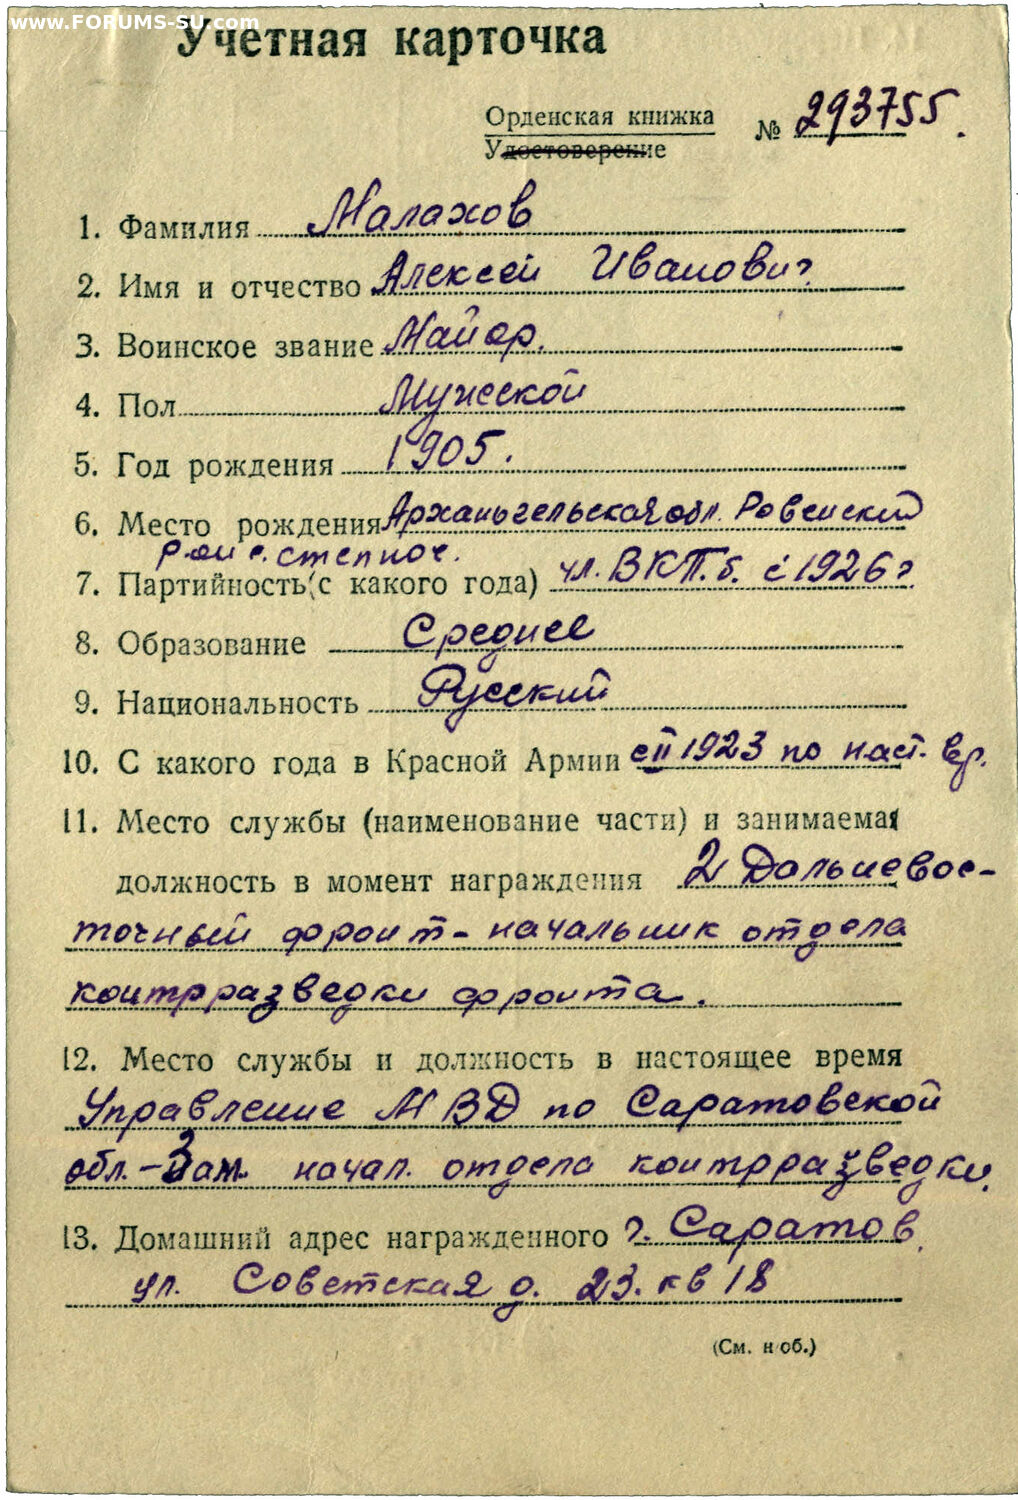 www.FORUMS-SU.com
Учетная карточка
Орденская книжка
Удостоверение
№ 293755.
1. Фамилия Малахов
2. Имя и отчество Алексей Иванович
3. Воинское звание Майор.
4. Пол Мужской
5. Год рождения 1905.
6. Место рождения Архангельская обл. Ровенский
р-он с. степное.
7. Партийность (с какого года) чл. ВКП.б. с 1926 г
8. Образование Среднее
9. Национальность Русский
10. С какого года в Красной Армии с II 1923 по наст. вр.
11. Место службы (наименование части) и занимаемая
должность в момент награждения 2 Дальневос-
точный фронт - начальник отдела
контрразведки фронта.
12. Место службы и должность в настоящее время
Управление МВД по Саратовской
обл. - Зам. начал. отдела контрразведки.
13. Домашний адрес награжденного г. Саратов,
ул. Советская д. 23. кв 18
(См. н об.)